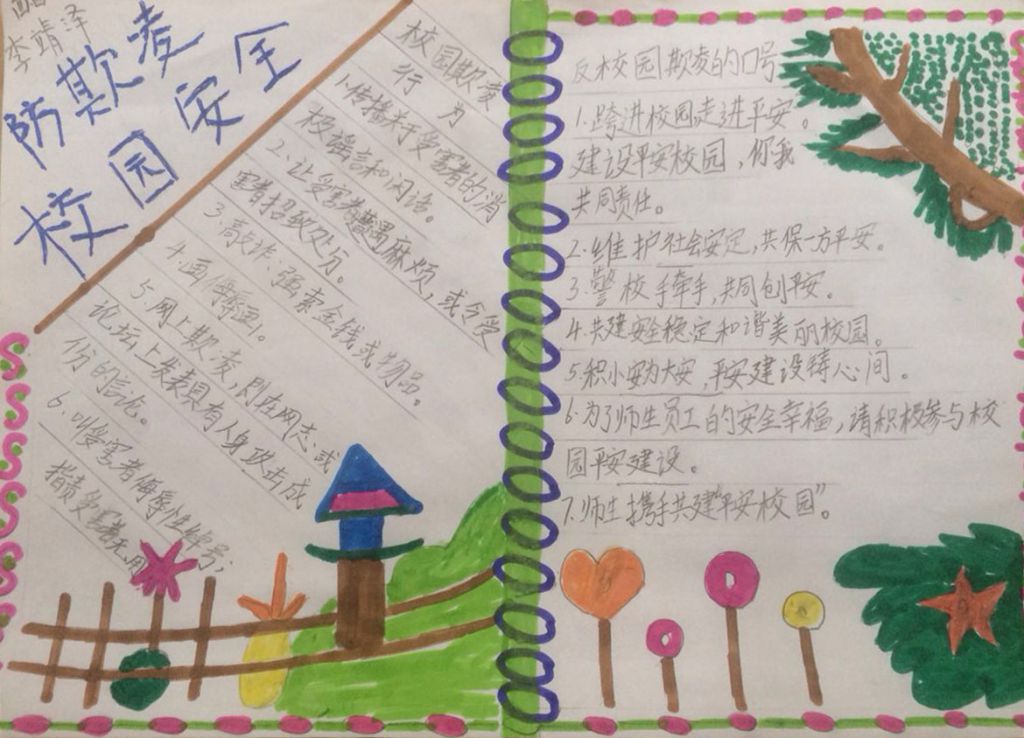 李靖泽
防欺凌
校园安全
校园欺凌
行为
1.传播关于受害者的消
极谣言和闲话。
2.让受害者遭遇麻烦,或令受
害者招致处分。
3.敲诈:强索金钱或物品。
4.画侮辱画。
5.网上欺凌,即在网志或
论坛上发表具有人身攻击成
份的言论。
6.叫受害者侮辱性绰号;
指责受害者无用
反校园欺凌的口号
1.跨进校园走进平安。
建设平安校园,你我
共同责任。
2.维护社会安定,共保一方平安。
3.警校手牵手,共同创平安。
4.共建安全稳定和谐美丽校园。
5.积小安为大安,平安建设铸心间。
6.为了师生员工的安全幸福,请积极参与校
园平安建设。
7.师生携手共建"平安校园"。